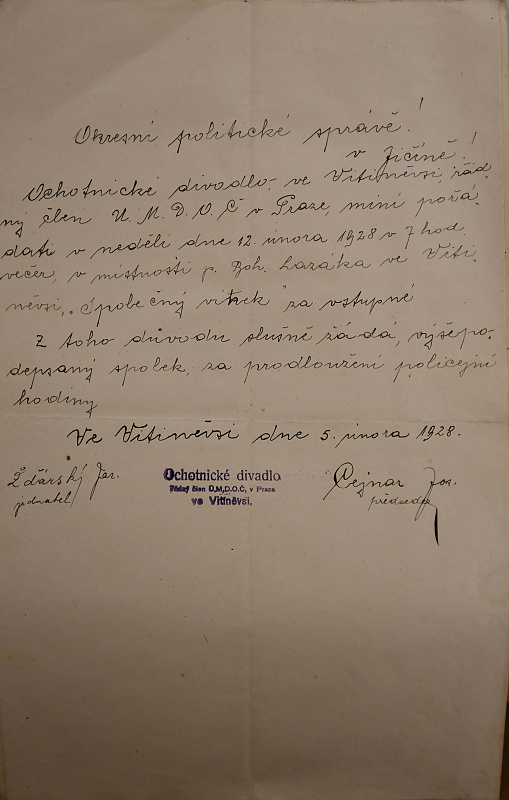 Okresní politické správě!
v Jičíně!
Ochotnické divadlo, ve Vitiněvsi, řád
ný člen U. M. D. O. Č v Praze, míní pořá.
dati v neděli dne 12. února 1928 v 7 hod.
večer, v místnosti p. Boh. Lazáka ve Viti.
něvsi, „Společný vínek" za vstupné
Z toho důvodu slušně žádá, výšepo.
depsaný spolek, za prodloužení policejní
hodiny
Ve Vitiněvsi dne 5. února 1928.
Žďárský Jar.
jednatel
Ochotnické divadlo
řádný člen Ú.M.D.O.Č. v Praze
ve Vitiněvsi.
Cejnar Jos.
předseda